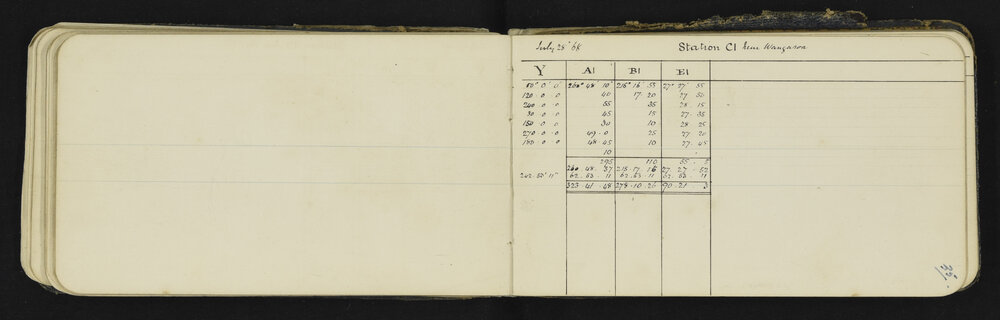 July 25th 68 Station C1 near Wangasoa
Y A1 B1 E1
80° 0' 0" 260° 48' 10" 215° 16' 55 27° 27' 55
120 . 0 . 0 40 17 . 20 27 50
240 . 0 . 0 55 35 28 . 15
30 . 0 . 0 45 15 27 . 35
150 . 0 . 0 30 10 28 25
270 . 0 . 0 49 . 0 25 27 20
180 0 0 48 . 45 10 27 . 45
10
295 110 55 . 5
260 48 . 37 215 . 17 . 16 27 . 27 . 52
242 . 53' 11" 62 . 53 . 11 62 . 53 . 11 62 . 53 11
323 . 41 . 48 278 . 10 . 26 90 . 21 . 3